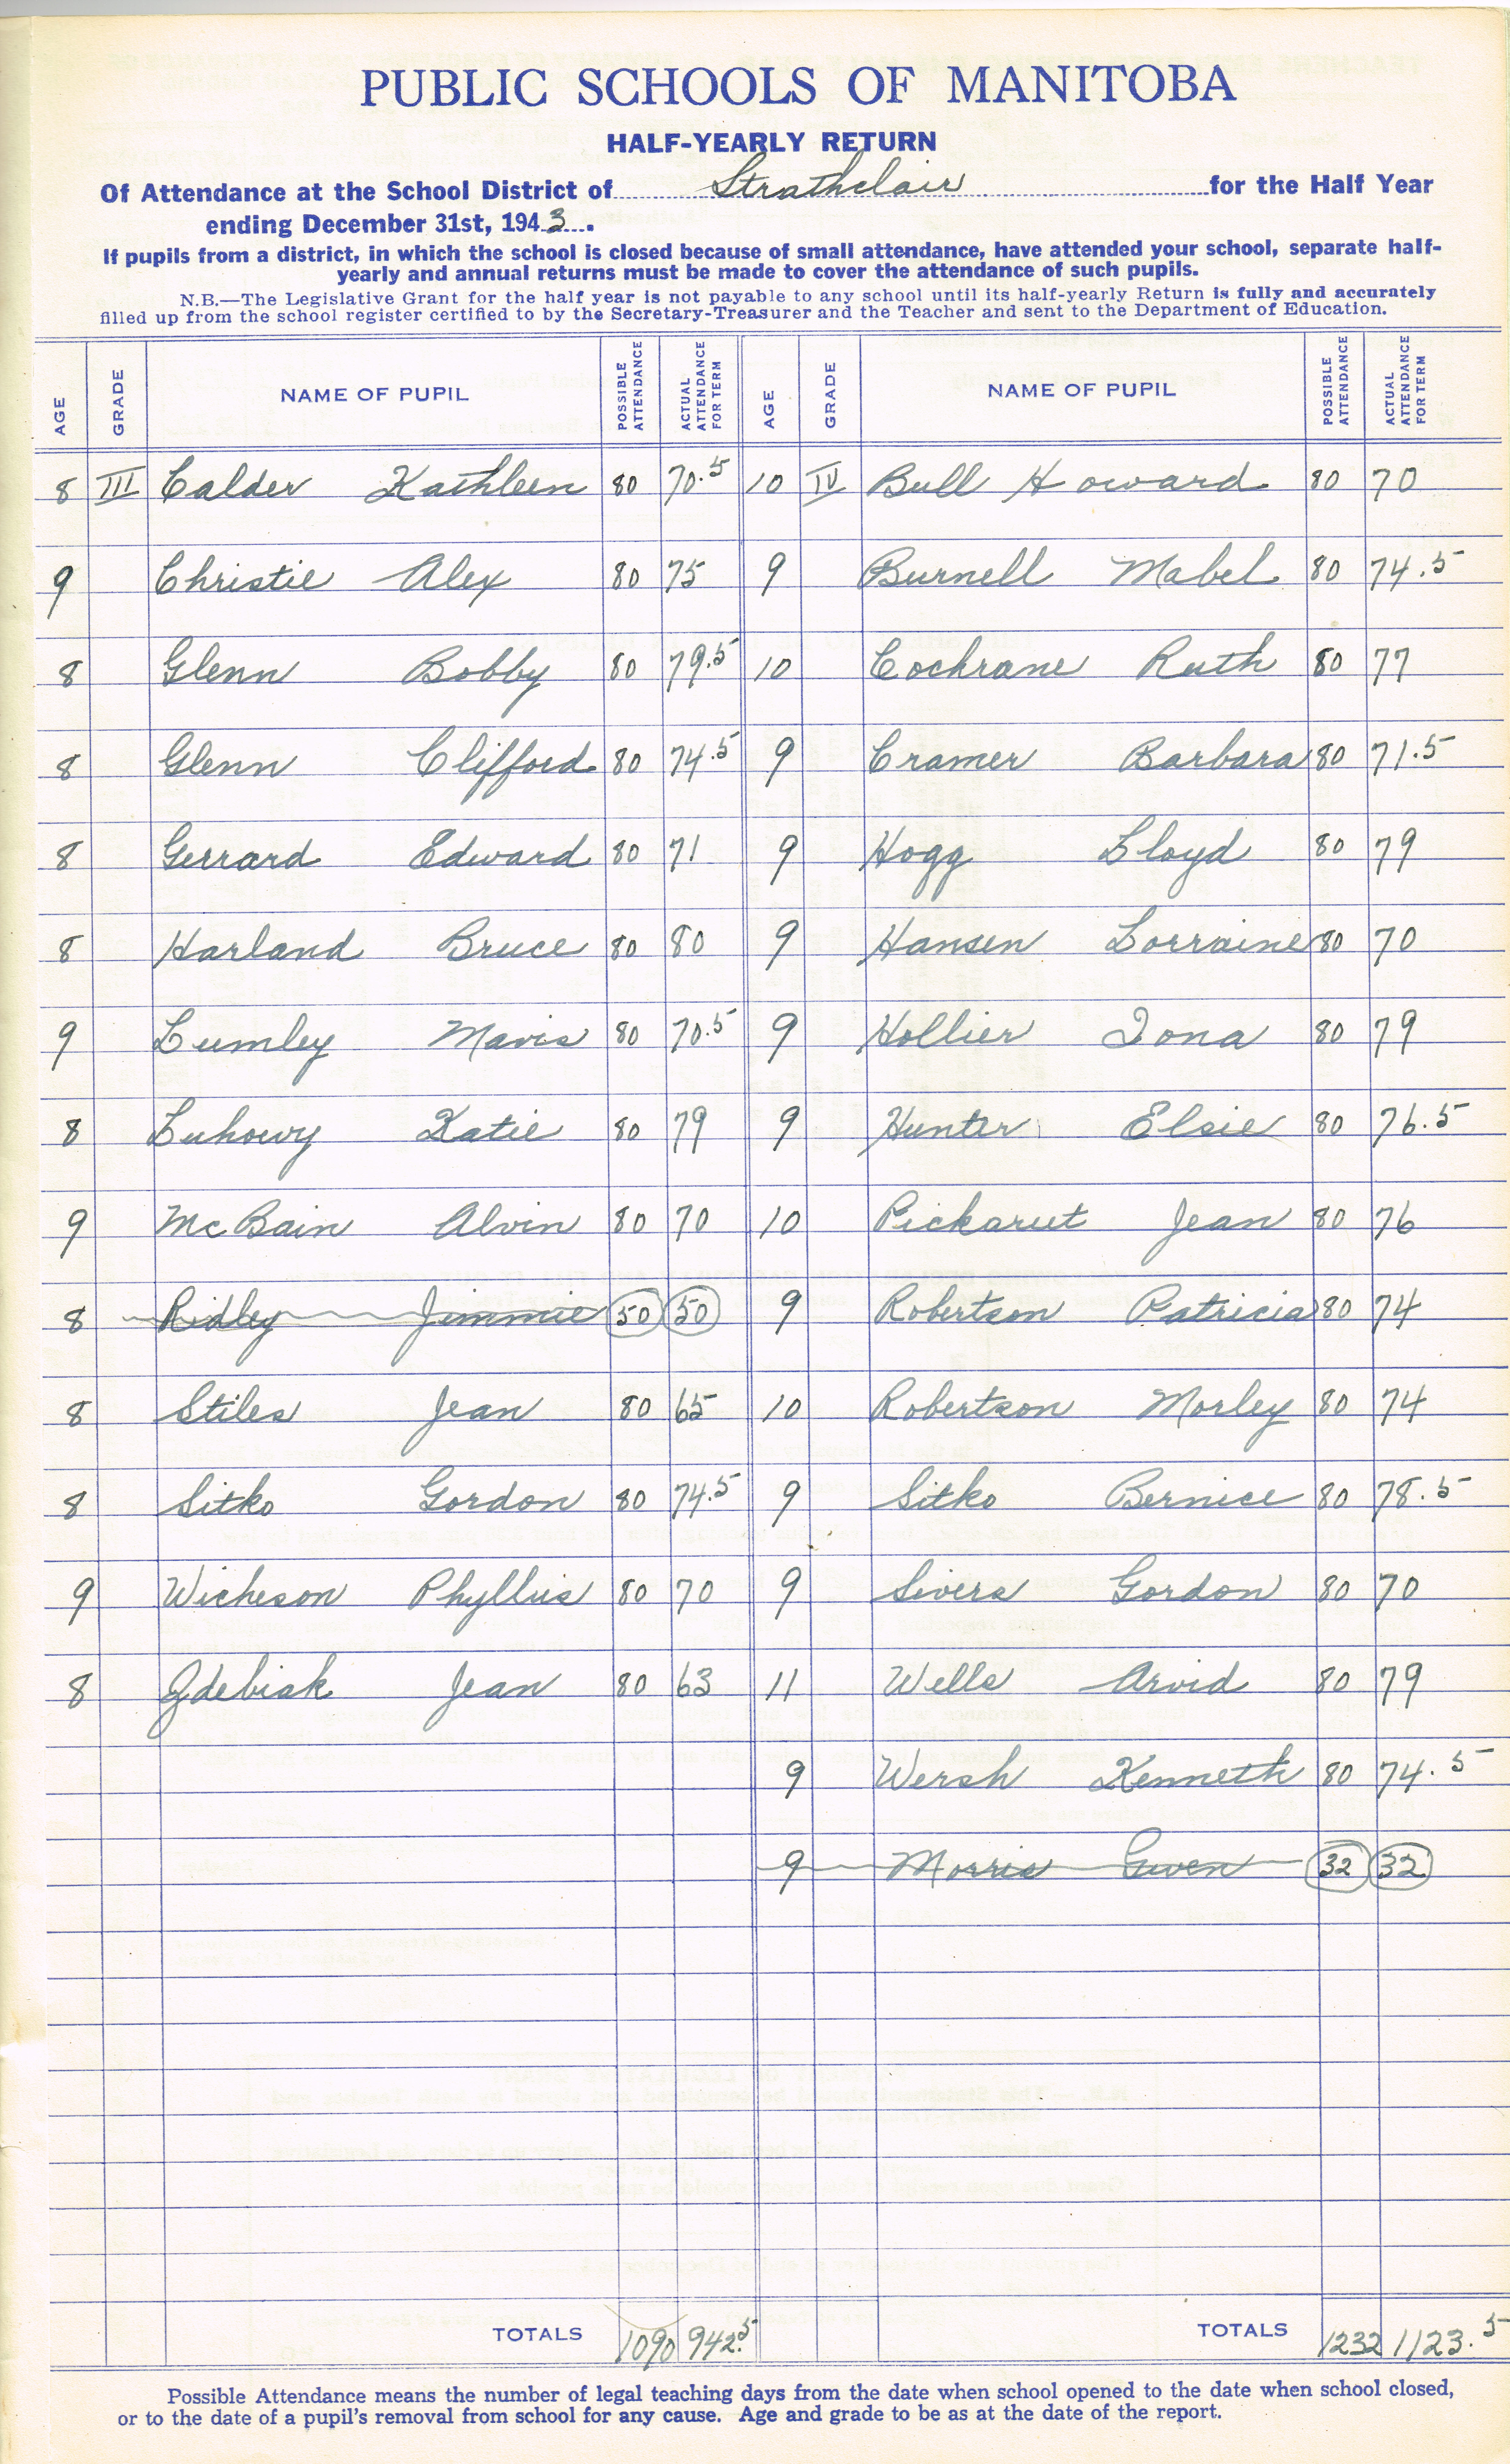 PUBLIC SCHOOLS OF MANITOBA
HALF-YEARLY RETURN
Of Attendance at the School District of Strathclair for the Half Year
ending December 31st, 1943.
If pupils from a district, in which the school is closed because of small attendance, have attended your school, separate half-
yearly and annual returns must be made to cover the attendance of such pupils.
N.B.—The Legislative Grant for the half year is not payable to any school until its half-yearly Return is fully and accurately
filled up from the school register certified to by the Secretary-Treasurer and the Teacher and sent to the Department of Education.
AGE GRADE NAME OF PUPIL POSSIBLE ATTENDANCE ACTUAL ATTENDANCE FOR TERM AGE GRADE NAME OF PUPIL POSSIBLE ATTENDANCE ACTUAL ATTENDANCE FOR TERM
8 III Calder Kathleen 80 70.5 10 IV Bull Howard 80 70
9 Christie Alex 80 75 9 Burnell Mabel 80 74.5
8 Glenn Bobby 80 79.5 10 Cochrane Ruth 80 77
8 Glenn Clifford 80 74.5 9 Cramer Barbara 80 71.5
8 Gerrard Edward 80 71 9 Hogg Lloyd 80 79
8 Harland Bruce 80 80 9 Hansen Lorraine 80 70
9 Lumley Mavis 80 70.5 9 Hollier Iona 80 79
8 Luhowy Katie 80 79 9 Hunter Elsie 80 76.5
9 McBain Alvin 80 70 10 Pickarut Jean 80 76
8 Ridley Jimmie 50 50 9 Robertson Patricia 80 74
8 Stiles Jean 80 65 10 Robertson Morley 80 74
8 Sitko Gordon 80 74.5 9 Sitko Bernice 80 78.5
9 Wicheson Phyllis 80 70 9 Sivers Gordon 80 70
8 Zdebiak Jean 80 63 11 Wells Arvid 80 79
9 Wersh Kenneth 80 74.5
9 Morris Gwen 32 32
TOTALS 1090 942.5 TOTALS 1232 1123.5
Possible Attendance means the number of legal teaching days from the date when school opened to the date when school closed,
or to the date of a pupil's removal from school for any cause. Age and grade to be as at the date of the report.